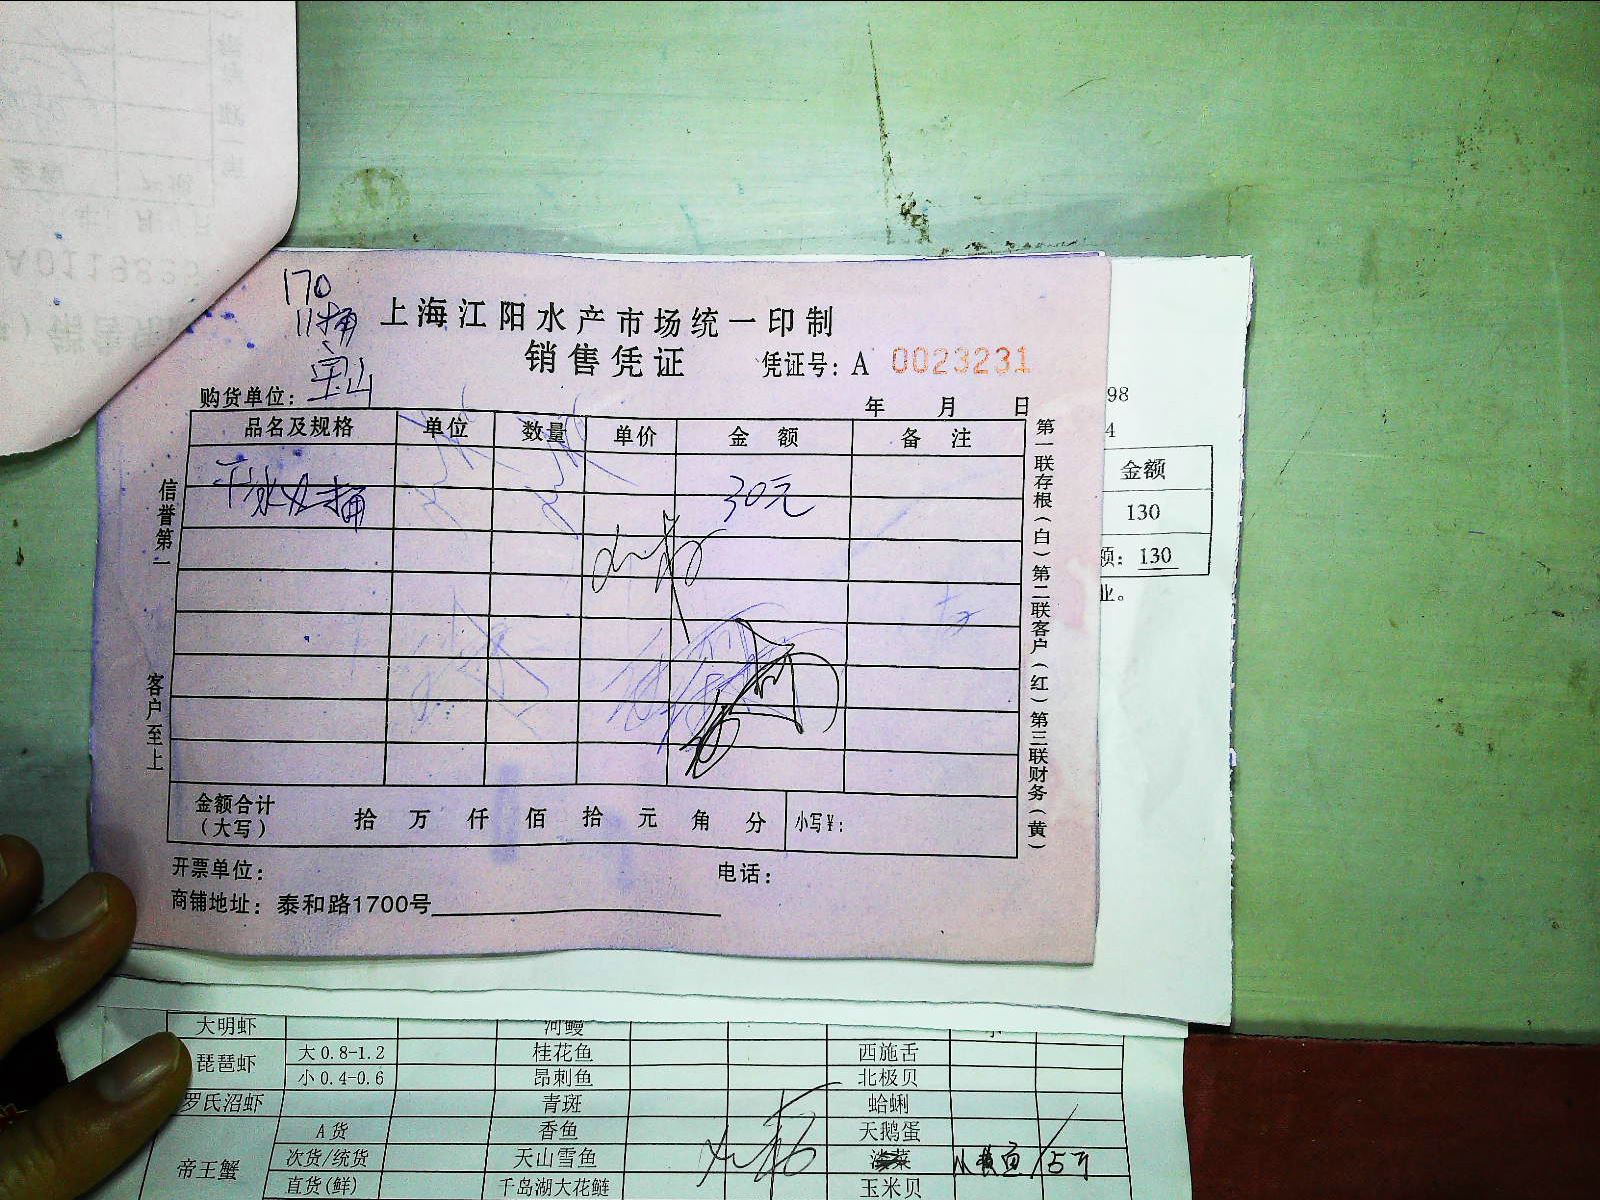 170
11桶
宝山
上海江阳水产市场统一印制
销售凭证
凭证号: A 0023231
购货单位:
年 月 日
品名及规格 单位 数量 单价 金额 备注
干冰 桶 30元
信誉第一
客户至上
第一联存根(白)第二联客户(红)第三联财务(黄)
金额合计(大写) 拾 万 仟 佰 拾 元 角 分 小写¥:
开票单位: 电话:
商铺地址: 泰和路1700号
98
4
金额
130
额: 130
业。
A0119833
大明虾 河鳗
琵琶虾 大0.8-1.2 桂花鱼 西施舌
小0.4-0.6 昂刺鱼 北极贝
罗氏沼虾 青斑 蛤蜊
A货 香鱼 天鹅蛋
帝王蟹 次货/统货 天山雪鱼
直货(鲜) 千岛湖大花鲢 玉米贝